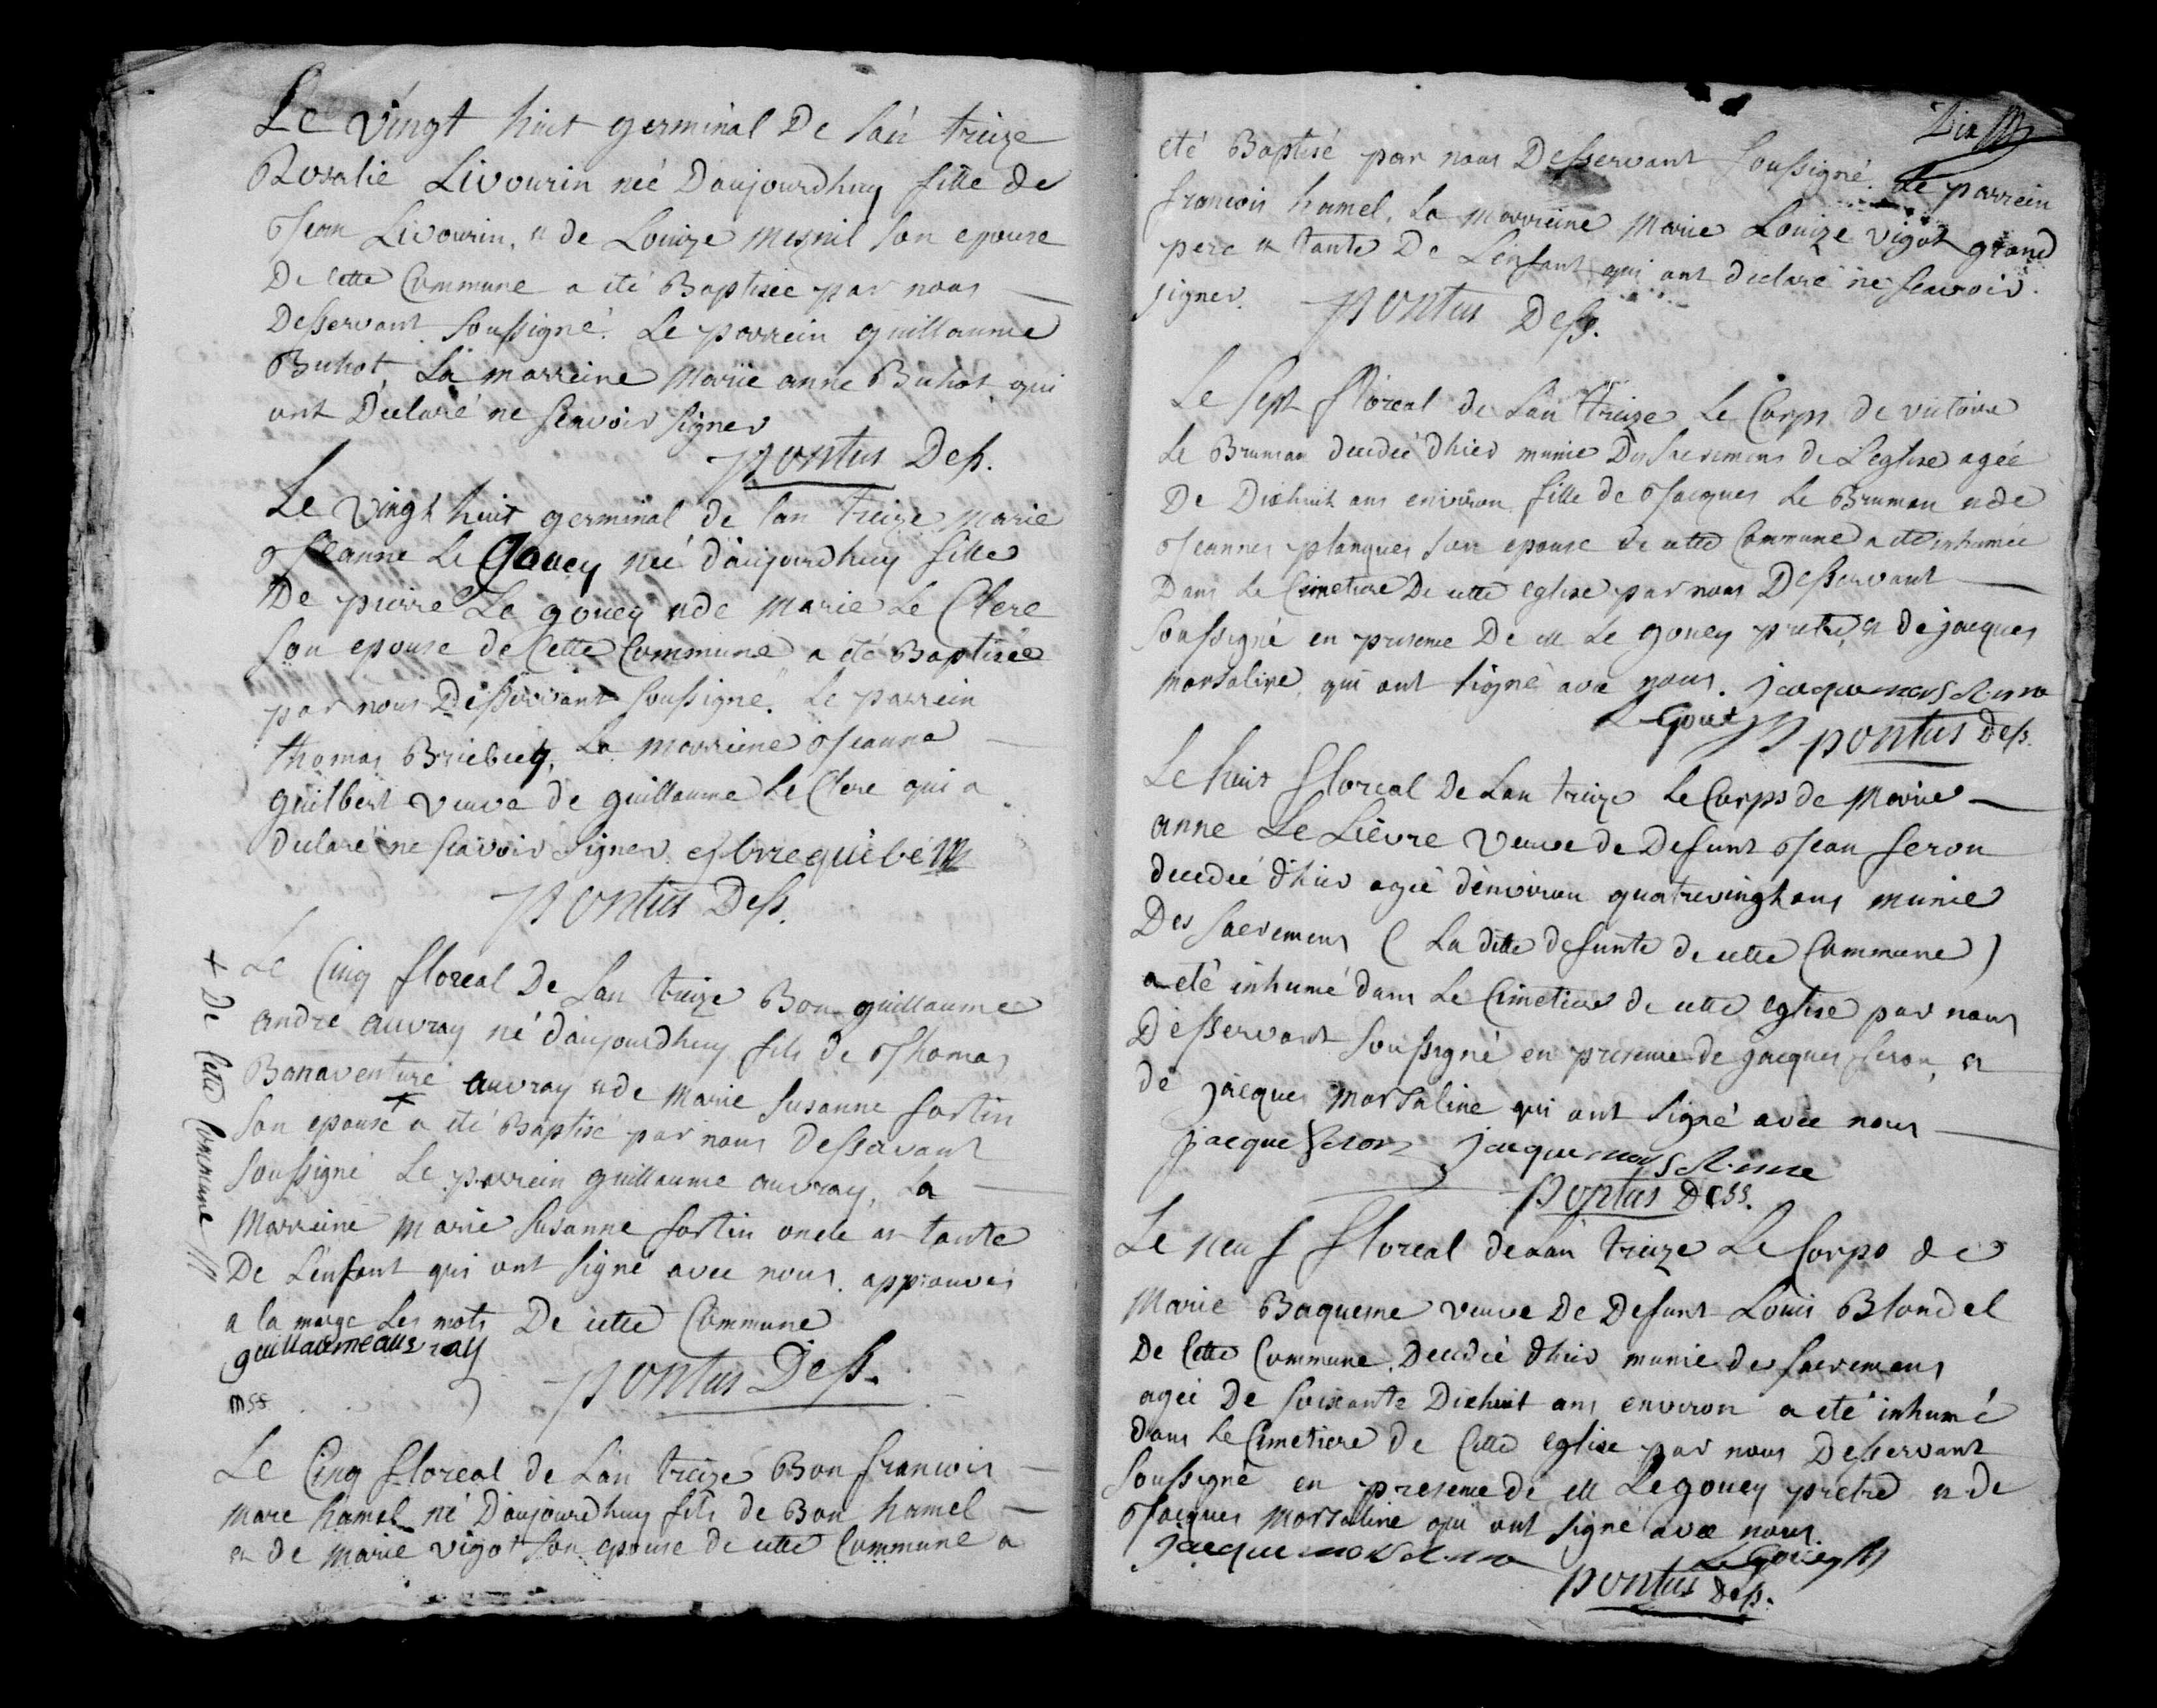 Le vingt huit germinal De l'an treize
Rosalie Livourin neé Daujourdhuy fille de
Jean Livourin, et de Louize Mesnil son epouse
De cette Commune a eté Baptisée par nous
Desservant soussigné. Le parrein guillaume
Buhot La marreine Marie anne Buhot qui
ont Declaré ne scavoir signer
pontus Dess.
Le vingt huit germinal de l'an treize Marie
Jeanne Le Gouey neé d'aujourdhuy fille
De pierre Le gouey et de Marie Le Clerc
son epouse de Cette Commune a été Baptisée
par nous Desservant soussigné. Le parrein
thomas Briebecq, La marreine Jeanne
guilbert veuve de guillaume le Clerc qui a
declaré ne scavoir signer
pontus Dess.
Le Cinq floreal De Lan treize Bon guillaume
andre auvray né d'aujourdhuy fils de Thomas
Bonaventure auvray et de Marie Susanne fortin
son epouse + a été Baptisé par nous desservant
soussigné Le parrein guillaume auvray, La
Marreine Marie Susanne fortin oncle et tante
De L'enfant qui ont signé avec nous. approuvés
a la marge Les mots De cette Commune
guillaume auvray
mss
pontus Dess.
+ De Cette Commune
Le Cinq floreal de Lan treize Bon francois
Marc hamel né Daujourdhuy fils de Bon hamel
et de Marie vigot son epouse de cette Commune a
Dix
eté Baptisé par nous Desservant soussigné. Le parrein
francois hamel. La marreine Marie Louize vigot grand
pere et tante De L'enfant qui ont declaré ne scavoir
signer. pontus Dess.
Le sept floreal de Lan treize Le Corps de victoire
Le Bruman decedeé d'hier munie Des sacremens de L'eglise ageé
De Dixhuit ans environ fille de Jacques Le Bruman et de
Jeanne planques son epouse de cette Commune a eté inhumée
Dans Le Cimetiere De cette eglise par nous Desservant
soussigné en presence De M Le gouey pretre, et de jacques
marsaline, qui ont signé avec nous. jacque marsaline
Le Gouey pontus Dess.
Le huit floreal De Lan treize Le Corps de Marie
anne Le Lièvre veuve de Defunt Jean feron
decedeé d'hier ageé d'environ quatrevingt ans munie
Des sacremens ( La ditte defunte de cette Commune )
a eté inhumé dans Le Cimetiere de cette eglise par nous
Desservant soussigné en presence de jacques feron, et
de jacques marsaline qui ont signé avec nous
jacque feron jacque marsaline
pontus Dess.
Le neuf floreal de Lan treize Le Corps de
Marie Baquesne veuve De Defunt Louis Blondel
De Cette Commune. Decedeé d'hier munie des sacremens
ageé De soixante Dixhuit ans environ a eté inhumé
dans Le Cimetiere de Cette eglise par nous Desservant
soussigné en presence de M Legouey pretre et de
Jacques Marsaline qui ont signé avec nous.
jacque marsaline Le Gouey
pontus Dess.